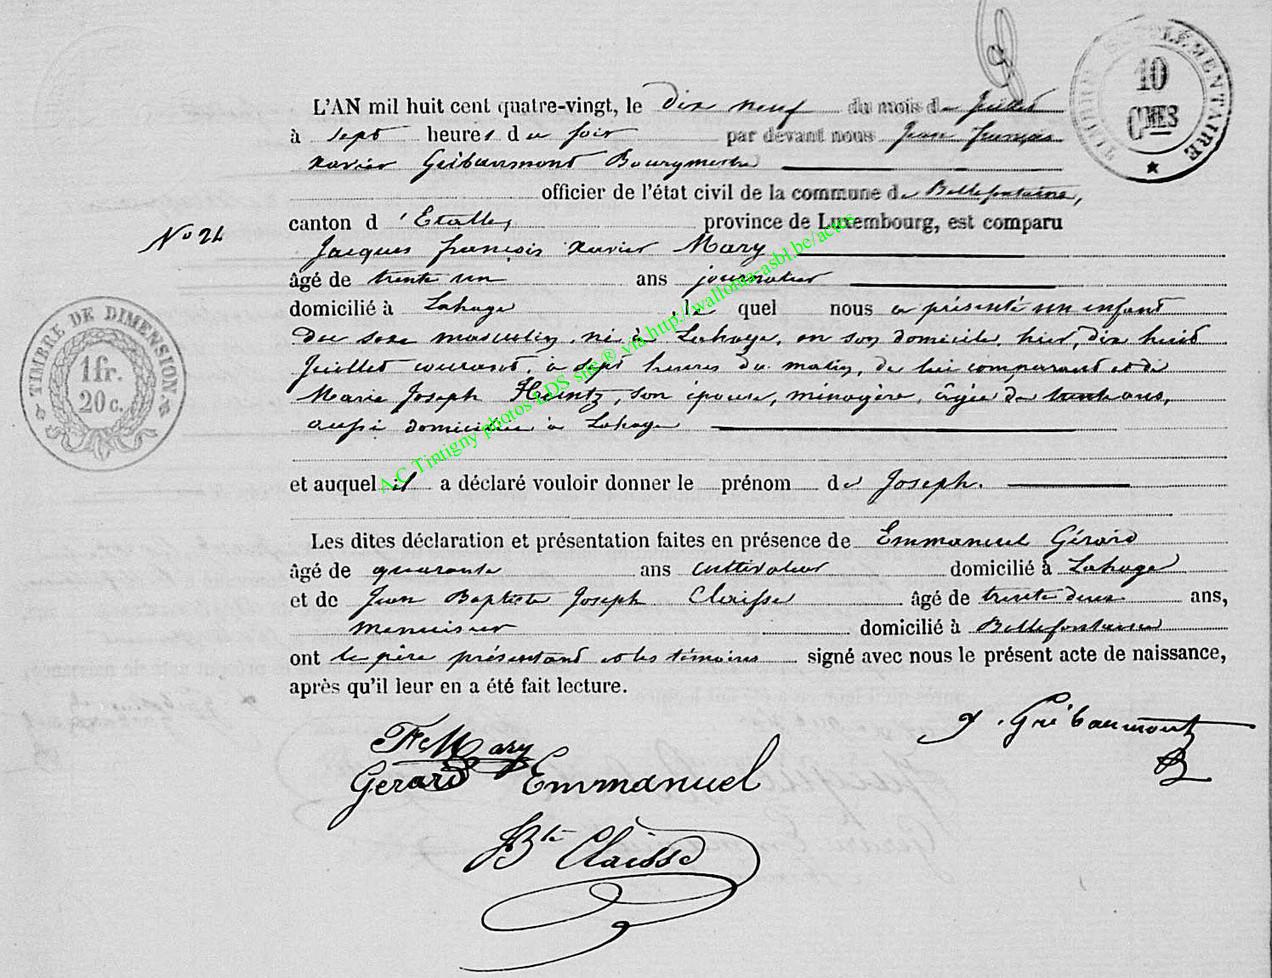 TIMBRE SUPPLÉMENTAIRE
10
CMES
L'AN mil huit cent quatre-vingt, le dix neuf du mois de Juillet
à sept heures du soir par devant nous Jean françois
xavier Gribaumont Bourgmestre
officier de l'état civil de la commune de Bellefontaine,
canton d'Etalle, province de Luxembourg, est comparu
No 24
Jacques françois xavier Mary
âgé de trente un ans journalier
domicilié à Lahage, le quel nous a présenté un enfant
du sexe masculin, né à Lahage, en son domicile, hier, dix huit
Juillet courant, à sept heures du matin, de lui comparant et de
Marie Joseph Heintz, son épouse, ménagère, âgée de trente ans,
aussi domiciliée à Lahage
et auquel il a déclaré vouloir donner le prénom de Joseph.
Les dites déclaration et présentation faites en présence de Emmanuel Gérard
âgé de quarante ans cultivateur domicilié à Lahage
et de Jean Baptiste Joseph Claisse âgé de trente deux ans,
menuisier domicilié à Bellefontaine
ont le père présentant et les témoins signé avec nous le présent acte de naissance,
après qu'il leur en a été fait lecture.
TIMBRE DE DIMENSION
1 fr.
20 c.
Fx Mary
J. Gribaumont
Gerard Emmanuel
JBte Claisse
A.C Tintigny photos LDS site ® via http://wallonia-asbl.be/actes